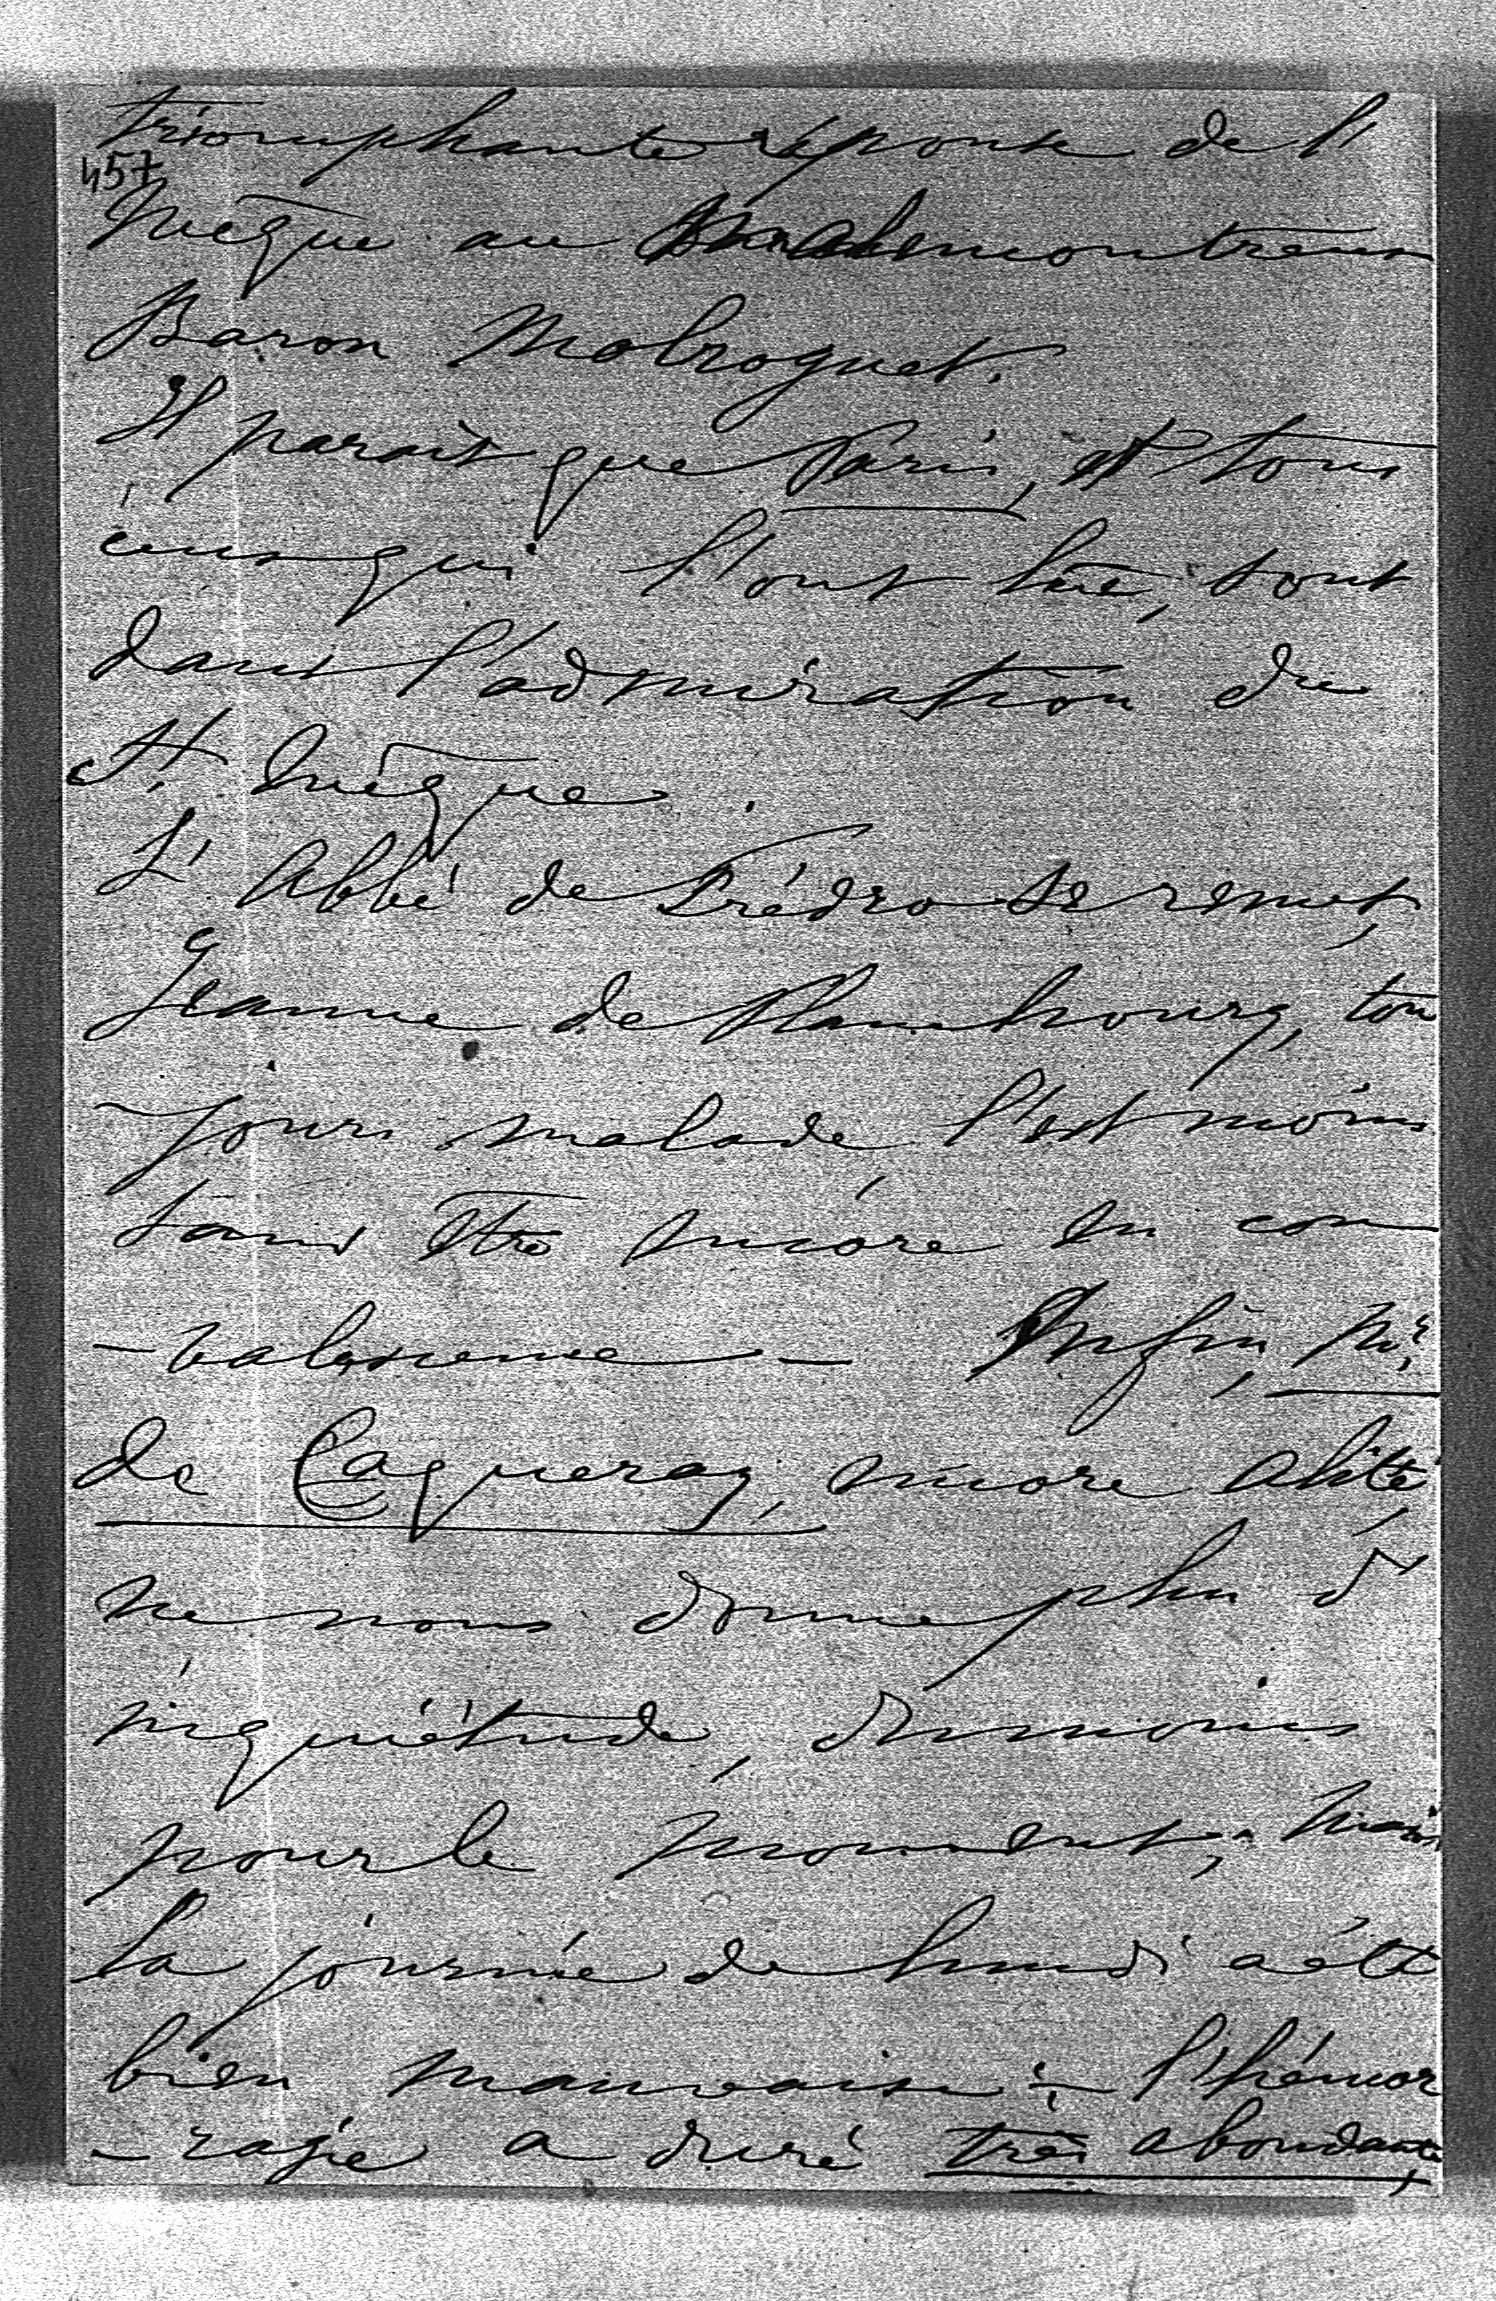 triomphante réponse de l'
457
Evêque au malencontreux
Baron Malroguet.
Il parait que Paris, et tous
ceux qui l'ont lue, sont
dans l'admiration du
St. Evêque.
L'Abbé de Frédro se remet,
Jeanne de Rambourg, tou
-jours malade, l'est moins
sans être encore en con
-valescence - Enfin, Mr
de Caqueray, encore alité,
ne nous donne plus d'
inquiétude, du moins
pour le moment; mais
la journée de lundi a été
bien mauvaise ; - l'hémor
-ragie a duré très abondante,